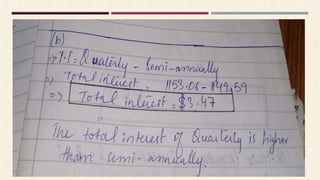 (b)
=> T.I = Quaterly - Semi-annually
=> Total interest = 1153.06 - 1149.59
=> Total interest = $3.47
The total interest of Quarterly is higher
than semi-annually.